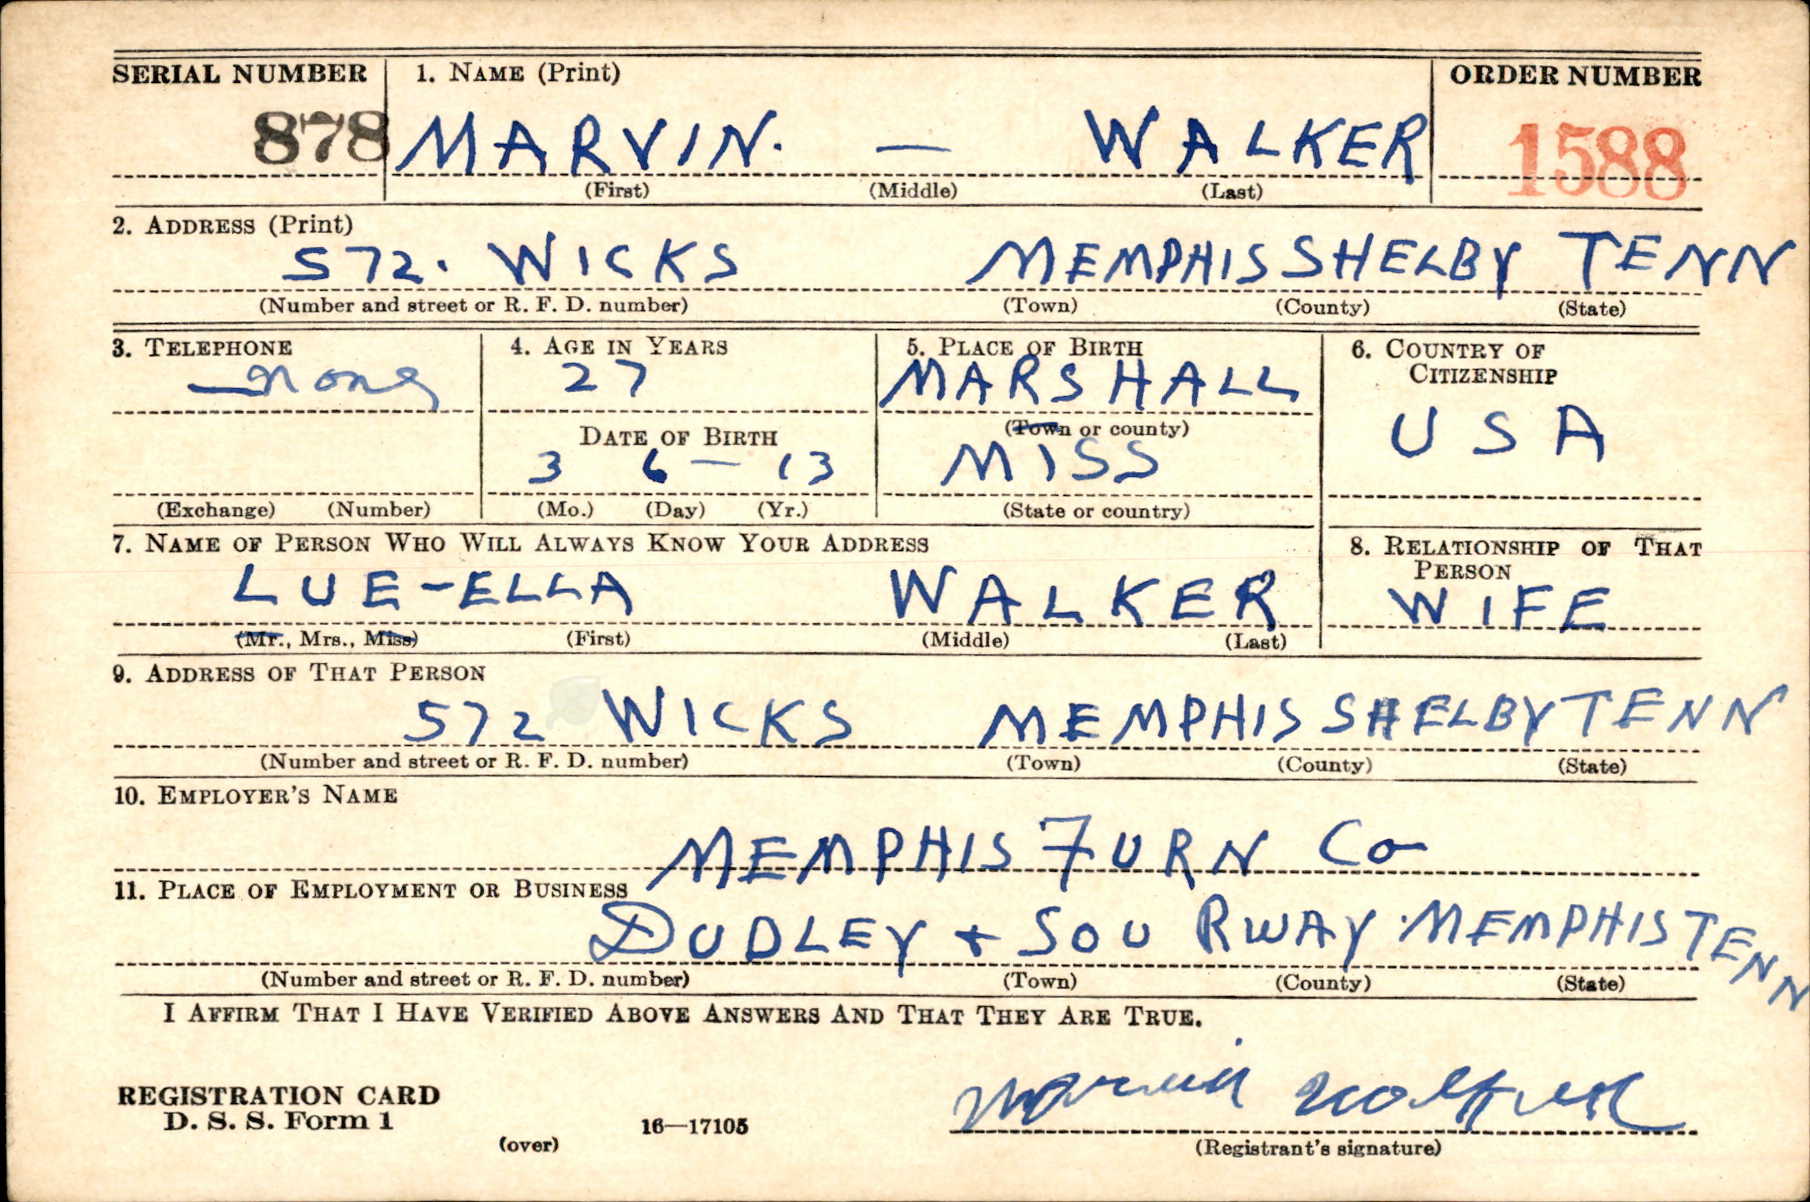 SERIAL NUMBER 1. NAME (Print) ORDER NUMBER
878 MARVIN. — WALKER 1588
(First) (Middle) (Last)
2. ADDRESS (Print)
572. WICKS MEMPHIS SHELBY TENN
(Number and street or R. F. D. number) (Town) (County) (State)
3. TELEPHONE 4. AGE IN YEARS 5. PLACE OF BIRTH 6. COUNTRY OF
CITIZENSHIP
none 27 MARSHALL USA
DATE OF BIRTH (Town or county)
3 6 — 13 MISS
(Exchange) (Number) (Mo.) (Day) (Yr.) (State or country)
7. NAME OF PERSON WHO WILL ALWAYS KNOW YOUR ADDRESS 8. RELATIONSHIP OF THAT
PERSON
LUE-ELLA WALKER WIFE
(Mr., Mrs., Miss) (First) (Middle) (Last)
9. ADDRESS OF THAT PERSON
572 WICKS MEMPHIS SHELBY TENN
(Number and street or R. F. D. number) (Town) (County) (State)
10. EMPLOYER'S NAME
MEMPHIS FURN Co
11. PLACE OF EMPLOYMENT OR BUSINESS
DUDLEY + SOU RWAY. MEMPHIS TENN
(Number and street or R. F. D. number) (Town) (County) (State)
I AFFIRM THAT I HAVE VERIFIED ABOVE ANSWERS AND THAT THEY ARE TRUE.
REGISTRATION CARD
D. S. S. Form 1
(over) 16—17105
Marvin Walker
(Registrant's signature)